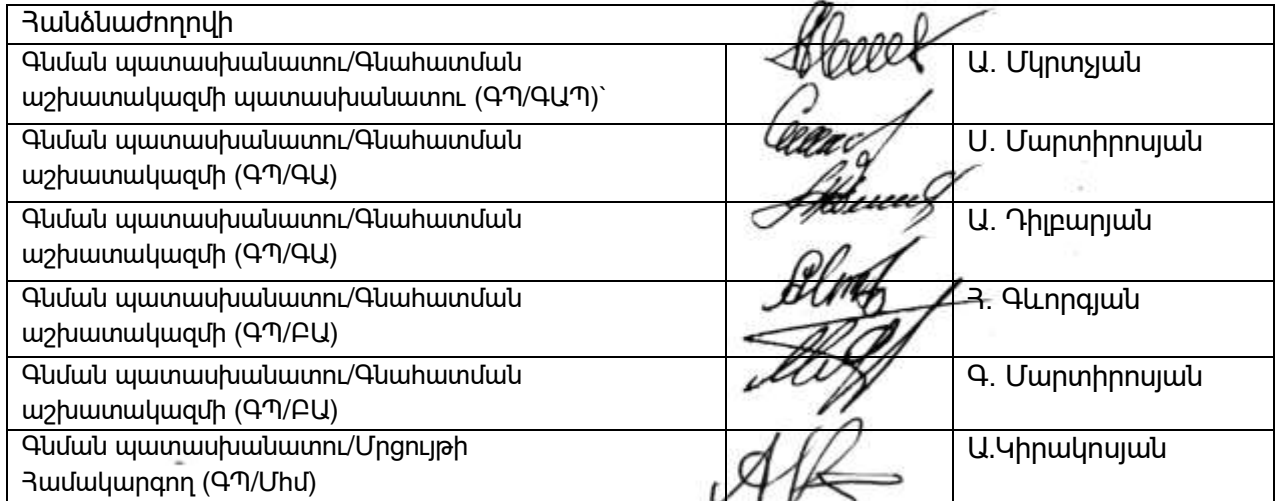 Հանձնաժողովի
Գնման պատասխանատու/Գնահատման
աշխատակազմի պատասխանատու (ԳՊ/ԳԱՊ)`
Ա. Մկրտչյան
Գնման պատասխանատու/Գնահատման
աշխատակազմի (ԳՊ/ԳԱ)
Ս. Մարտիրոսյան
Գնման պատասխանատու/Գնահատման
աշխատակազմի (ԳՊ/ԳԱ)
Ա. Դիլբարյան
Գնման պատասխանատու/Գնահատման
աշխատակազմի (ԳՊ/ԲԱ)
Հ. Գևորգյան
Գնման պատասխանատու/Գնահատման
աշխատակազմի (ԳՊ/ԲԱ)
Գ. Մարտիրոսյան
Գնման պատասխանատու/Մրցույթի
Համակարգող (ԳՊ/Մհմ)
Ա.Կիրակոսյան